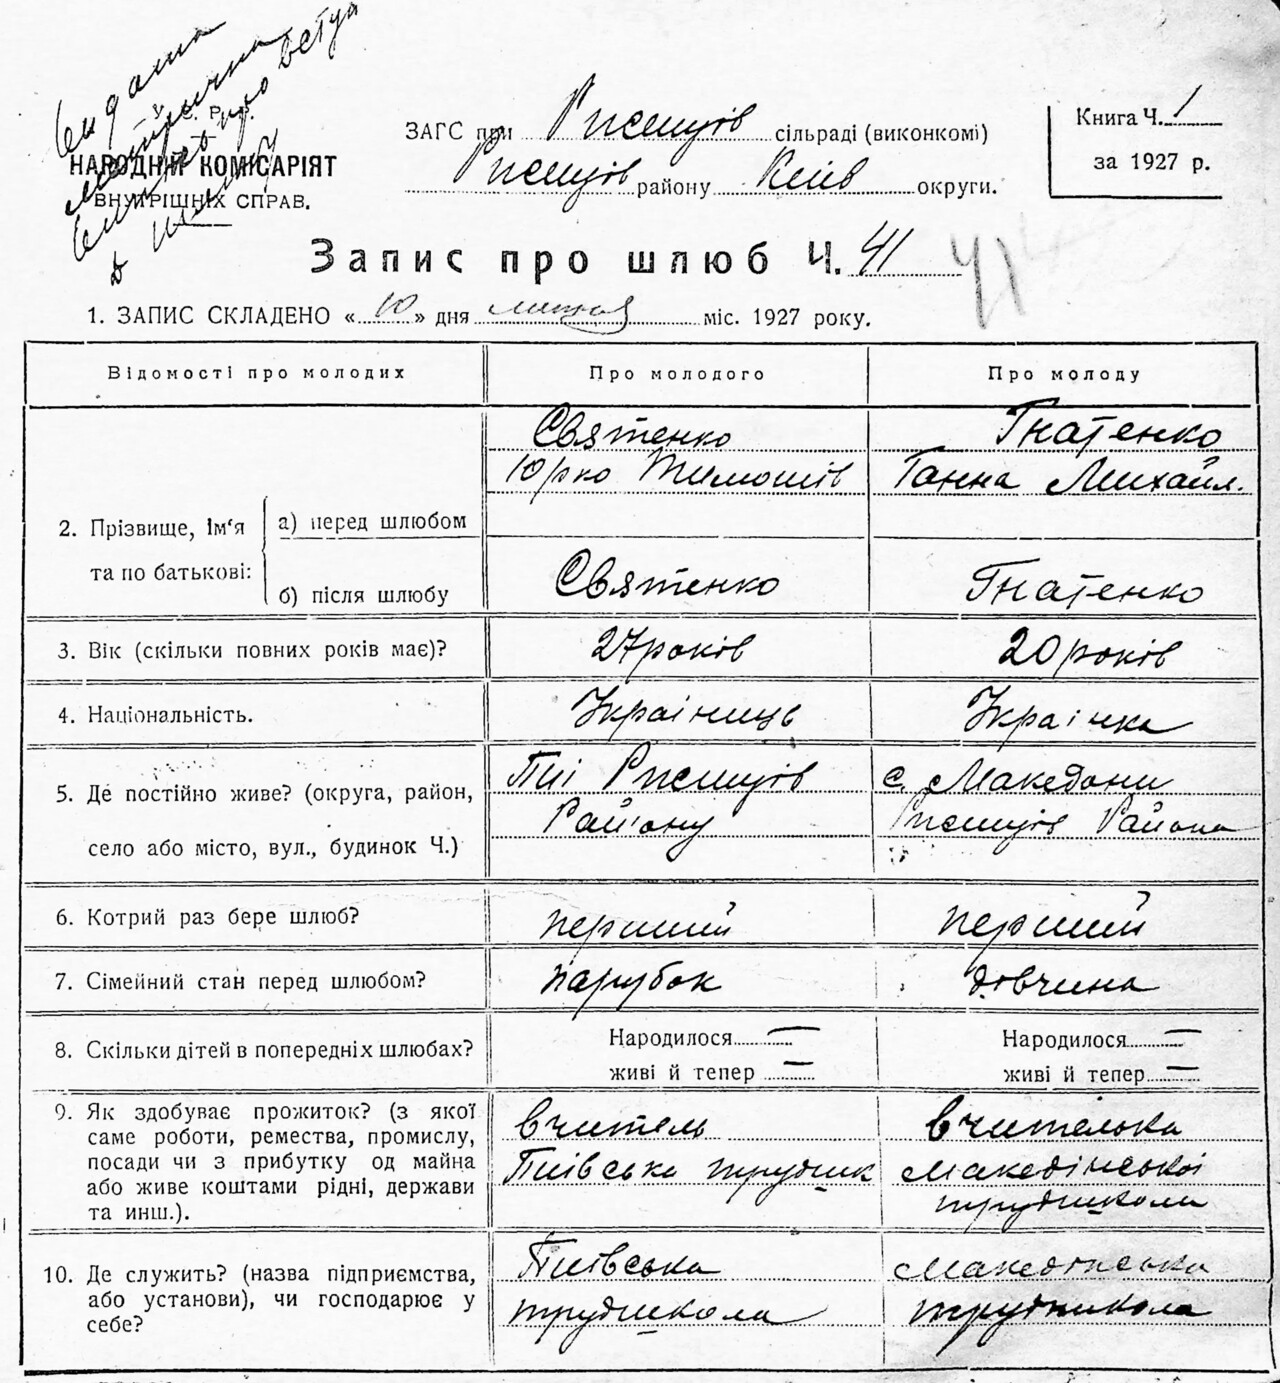 видана
метрична
виписка про вступ
в шлюб
У. С. Р. Р.
НАРОДНІЙ КОМІСАРІЯТ
ВНУТРІШНІХ СПРАВ.
ЗАГС при Ржищів сільраді (виконкомі)
Ржищів району Київ округи.
Книга Ч. 1
за 1927 р.
Запис про шлюб Ч. 41
41
1. ЗАПИС СКЛАДЕНО «10» дня лютого міс. 1927 року.
Відомості про молодих Про молодого Про молоду
2. Прізвище, ім'я та по батькові:
а) перед шлюбом
Святенко
Юрко Тимошів
Гнатенко
Ганна Михайл.
б) після шлюбу Святенко Гнатенко
3. Вік (скільки повних років має)? 27 років 20 років
4. Національність. Українець Українка
5. Де постійно живе? (округа, район,
село або місто, вул., будинок Ч.)
Пиї Ржищів
Району
с. Македони
Ржищів Району
6. Котрий раз бере шлюб? перший перший
7. Сімейний стан перед шлюбом? парубок дівчина
8. Скільки дітей в попередніх шлюбах?
Народилося —
живі й тепер —
Народилося —
живі й тепер —
9. Як здобуває прожиток? (з якої
саме роботи, ремества, промислу,
посади чи з прибутку од майна
або живе коштами рідні, держави
та инш.).
вчитель
Пиївська трудшк
вчителька
Македінської
трудшколи
10. Де служить? (назва підприємства,
або установи), чи господарює у
себе?
Пиївська
трудшкола
Македінська
трудшкола